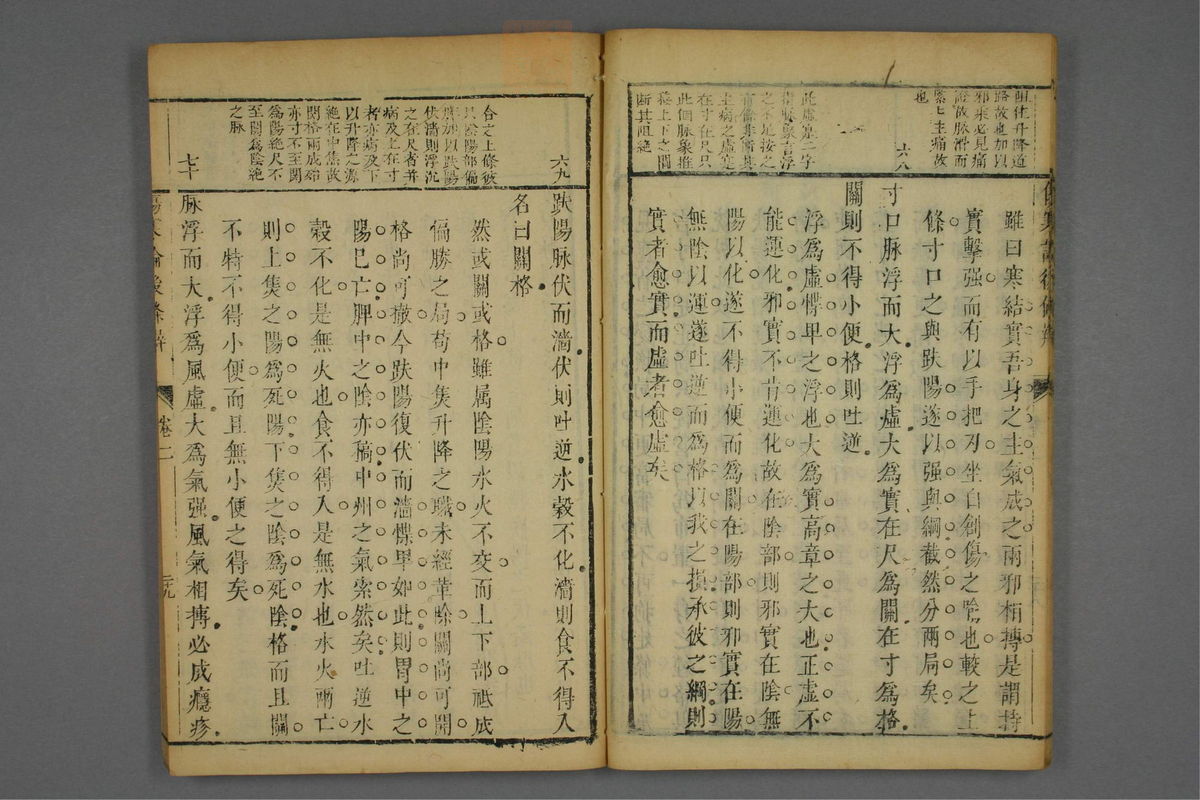 阻往升降道
路故也加以
邪乘必見痛
證故脉滑而
緊七主痛故
也
六八
此虛集二字
之不足按之
主病之虛實
在寸在尺只
此個脈象推
斷其阻絶
雖曰寒結實吾身之主氣成之兩邪相搏是謂持
實擊强而有以手把刃坐自創傷之喻也較之上
條寸口之與趺陽遂以强與綱截然分兩局矣
寸口脉浮而大浮爲虛大爲實在尺爲關在寸爲格
關則不得小便格則吐逆
浮爲虛懵卑之浮也大爲實高章之大也正虛不
能運化邪實不肯運化故在陰部則邪實在陰無
陽以化遂不得小便而爲關在陽部則邪實在陽
無陰以運遂吐逆而爲格以我之損承彼之綱則
實者愈實而虛者愈虛矣
六九
合之上條彼
只陰陽部偏
勝加以趺陽
伏濇則浮沉
之在尺者并
病及上在寸
者亦病及下
以升降之源
絶在中焦故
關格兩成始
亦寸不至關
爲陽絶尺不
至關爲陰絶
之脉
七十
趺陽脉伏而濇伏則吐逆水榖不化濇則食不得入
名曰關格
然或關或格雖属陰陽水火不交而上下部祗成
偏勝之局苟中焦升降之職未經革除關尚可開
格尚可撤今趺陽復伏而濇慄卑如此則胃中之
陽巳亡脾中之陰亦稿中州之氣索然矣吐逆水
榖不化是無火也食不得入是無水也水火兩亡
則上焦之陽爲死陽下焦之陰爲死陰格而且關
不特不得小便而且無小便之得矣
脉浮而大浮爲風虛大爲氣强風氣相搏必成癮疹
傷寒論後條辨
卷二
二九